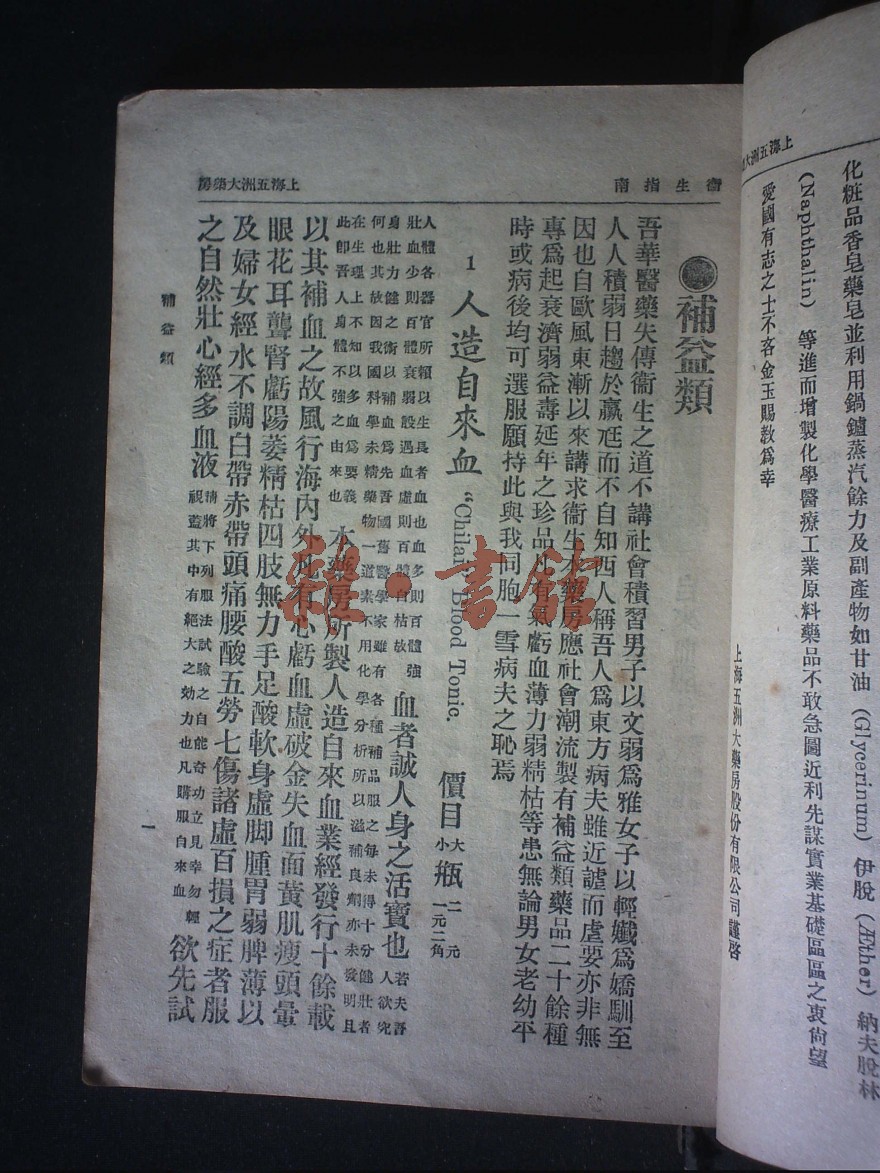 上海五洲大
化粧品香皂藥皂並利用鍋鑪蒸汽餘力及副產物如甘油 (Glycerinum) 伊脫 (Æther) 納夫脫林
(Naphthalin) 等進而增製化學醫療工業原料藥品不敢急圖近利先謀實業基礎區區之衷尙望
愛國有志之士不吝金玉賜敎爲幸
上海五洲大藥房股份有限公司謹啓
衞生指南
上海五洲大藥房
補益類
吾華醫藥失傳衞生之道不講社會積習男子以文弱爲雅女子以輕孅爲嬌馴至
人人積弱日趨於羸尫而不自知西人稱吾人爲東方病夫雖近謔而虐要亦非無
因也自歐風東漸以來講求衞生本藥房應社會潮流製有補益類藥品二十餘種
專爲起衰濟弱益壽延年之珍品凡有氣虧血薄力弱精枯等患無論男女老幼平
時或病後均可選服願持此與我同胞一雪病夫之恥焉
1 人造自來血 "Chilai's Blood Tonic. 價目 大小瓶 二元 一元二角
人體各器官所賴以生長者血也血多則百體強
壯血少則百體衰弱設遇血虛則百體自枯故
血者誠人身之活寶也
若夫吾
人欲究
身壯力健之術以補血爲先吾國舊醫學家雖有各種補品服之每未得十分健壯者
何也其故因我國科學未精藥物一道素不用化學分析所以滋補良劑亦未發明且
在生理上不知以多血爲要義
此卽吾人身體不強之由來也
本藥房所製人造自來血業經發行十餘載
以其補血之故風行海內外凡有心虧血虛破金失血面黃肌瘦頭暈
眼花耳聾腎虧陽萎精枯四肢無力手足酸軟身虛脚腫胃弱脾薄以
及婦女經水不調白帶赤帶頭痛腰酸五勞七傷諸虛百損之症者服
之自然壯心經多血液
請將下列服法試驗之自能奇功立見幸勿輕
視蓋其中有絕大之效力也凡購服自來血
欲先試
補益類
一
雜·書館